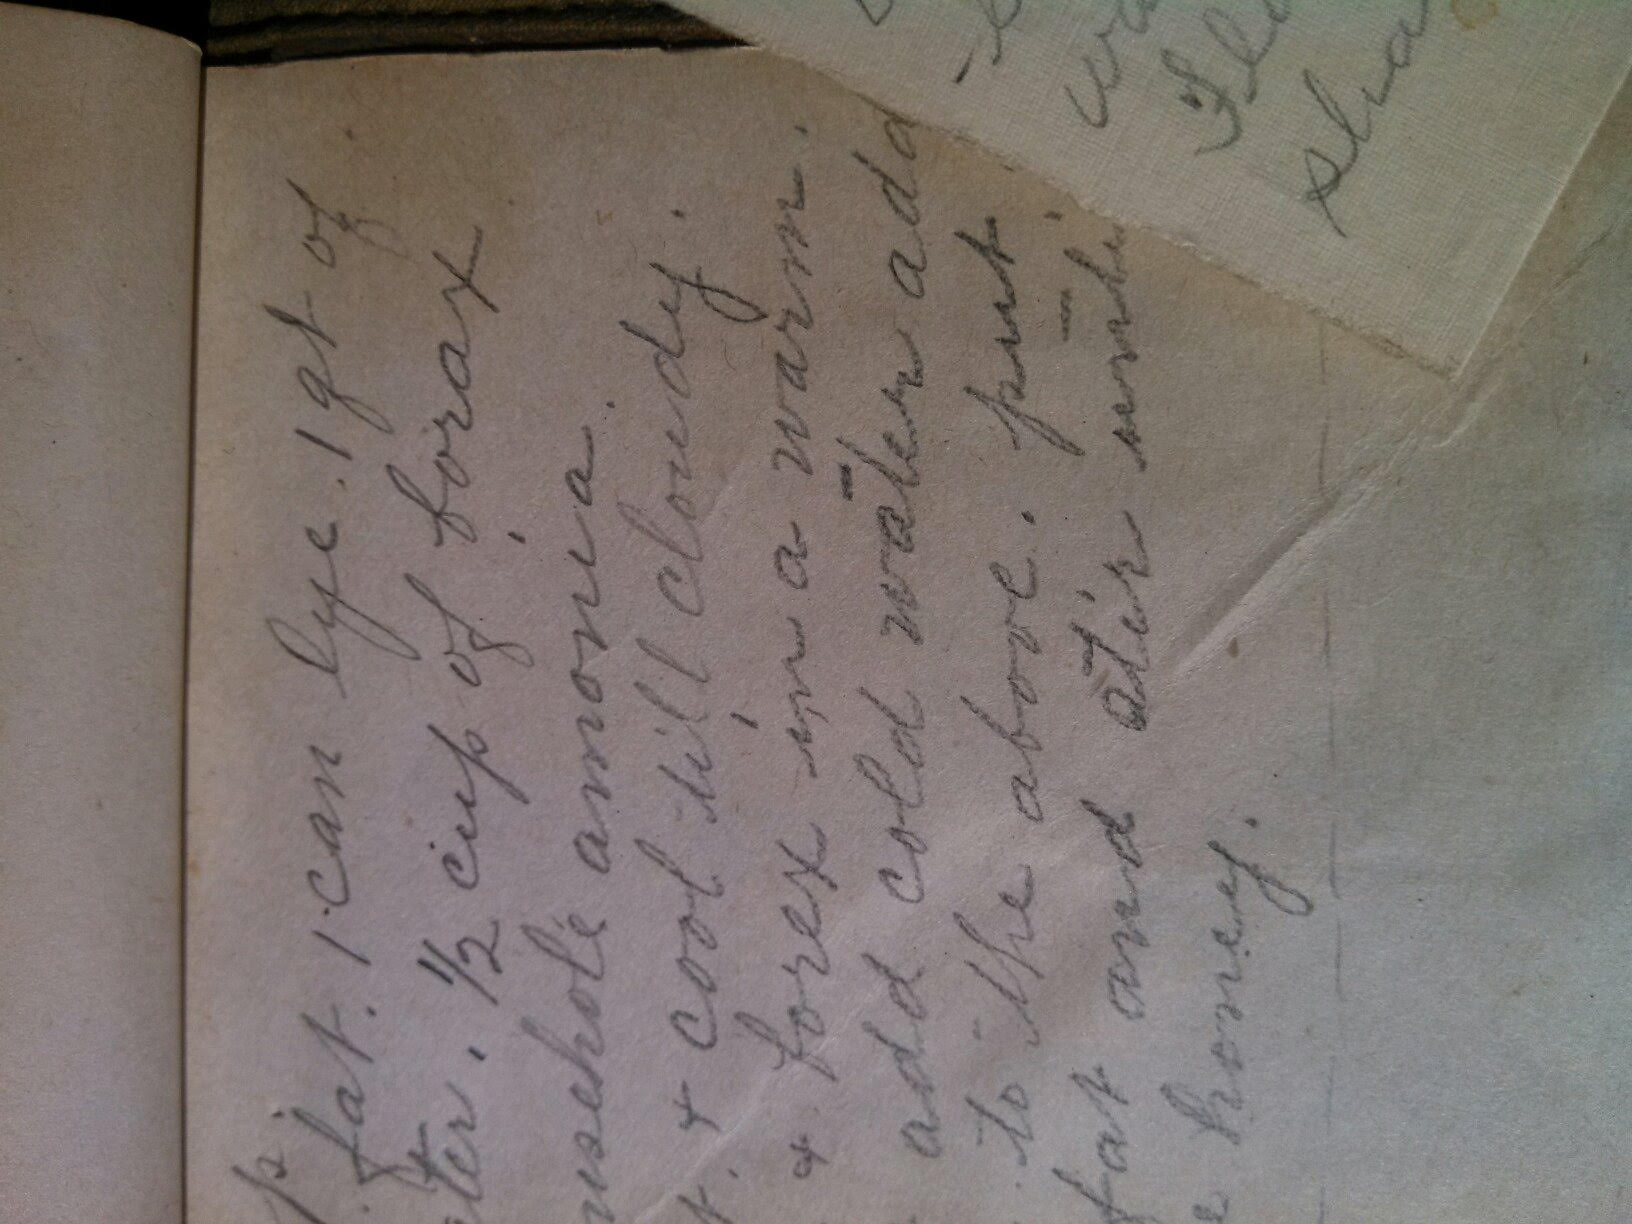 p.
fat. 1 can lye. 1 qt of
ter. 1/2 cup of borax
usehole amonia.
t. & cool till cloudy.
& forex in a warm.
add cold water add
to the above. put
fat and ater
e honey.
sha